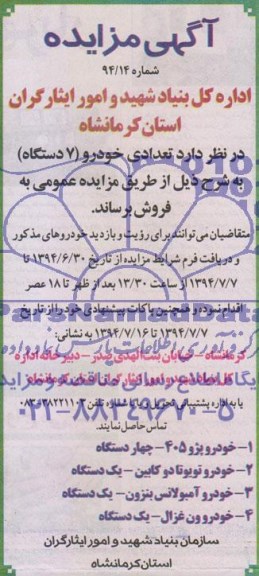 آگهی مزایده
شماره ۹۴/۱۴
اداره کل بنیاد شهید و امور ایثارگران
استان کرمانشاه
در نظر دارد تعدادی خودرو (۷ دستگاه)
به شرح ذیل از طریق مزایده عمومی به
فروش برساند.
متقاضیان می توانند برای رؤیت و بازدید خودروهای مذکور
و دریافت فرم شرایط مزایده از تاریخ ۱۳۹۴/۶/۳۰ تا
۱۳۹۴/۷/۷ از ساعت ۱۳/۳۰ بعد از ظهر تا ۱۸ عصر
اقدام نموده و همچنین پاکات پیشنهادی خود را از تاریخ
۱۳۹۴/۷/۷ تا ۱۳۹۴/۷/۱۶ به نشانی:
کرمانشاه - خیابان بنت الهدی صدر - دبیرخانه اداره
کل بنیاد شهید و امور ایثارگران استان کرمانشاه
یا به اداره پشتیبانی تحویل و یا با شماره تلفن ۰۸۳-۳۸۲۲۱۱۰۳
تماس حاصل نمایند.
۰۲۱-۸۸۳۴۹۶۷۰-۵
۱- خودرو پژو ۴۰۵- چهار دستگاه
۲- خودرو تویوتا دو کابین - یک دستگاه
۳- خودرو آمبولانس بنزون - یک دستگاه
۴- خودرو ون غزال - یک دستگاه
سازمان بنیاد شهید و امور ایثارگران
استان کرمانشاه